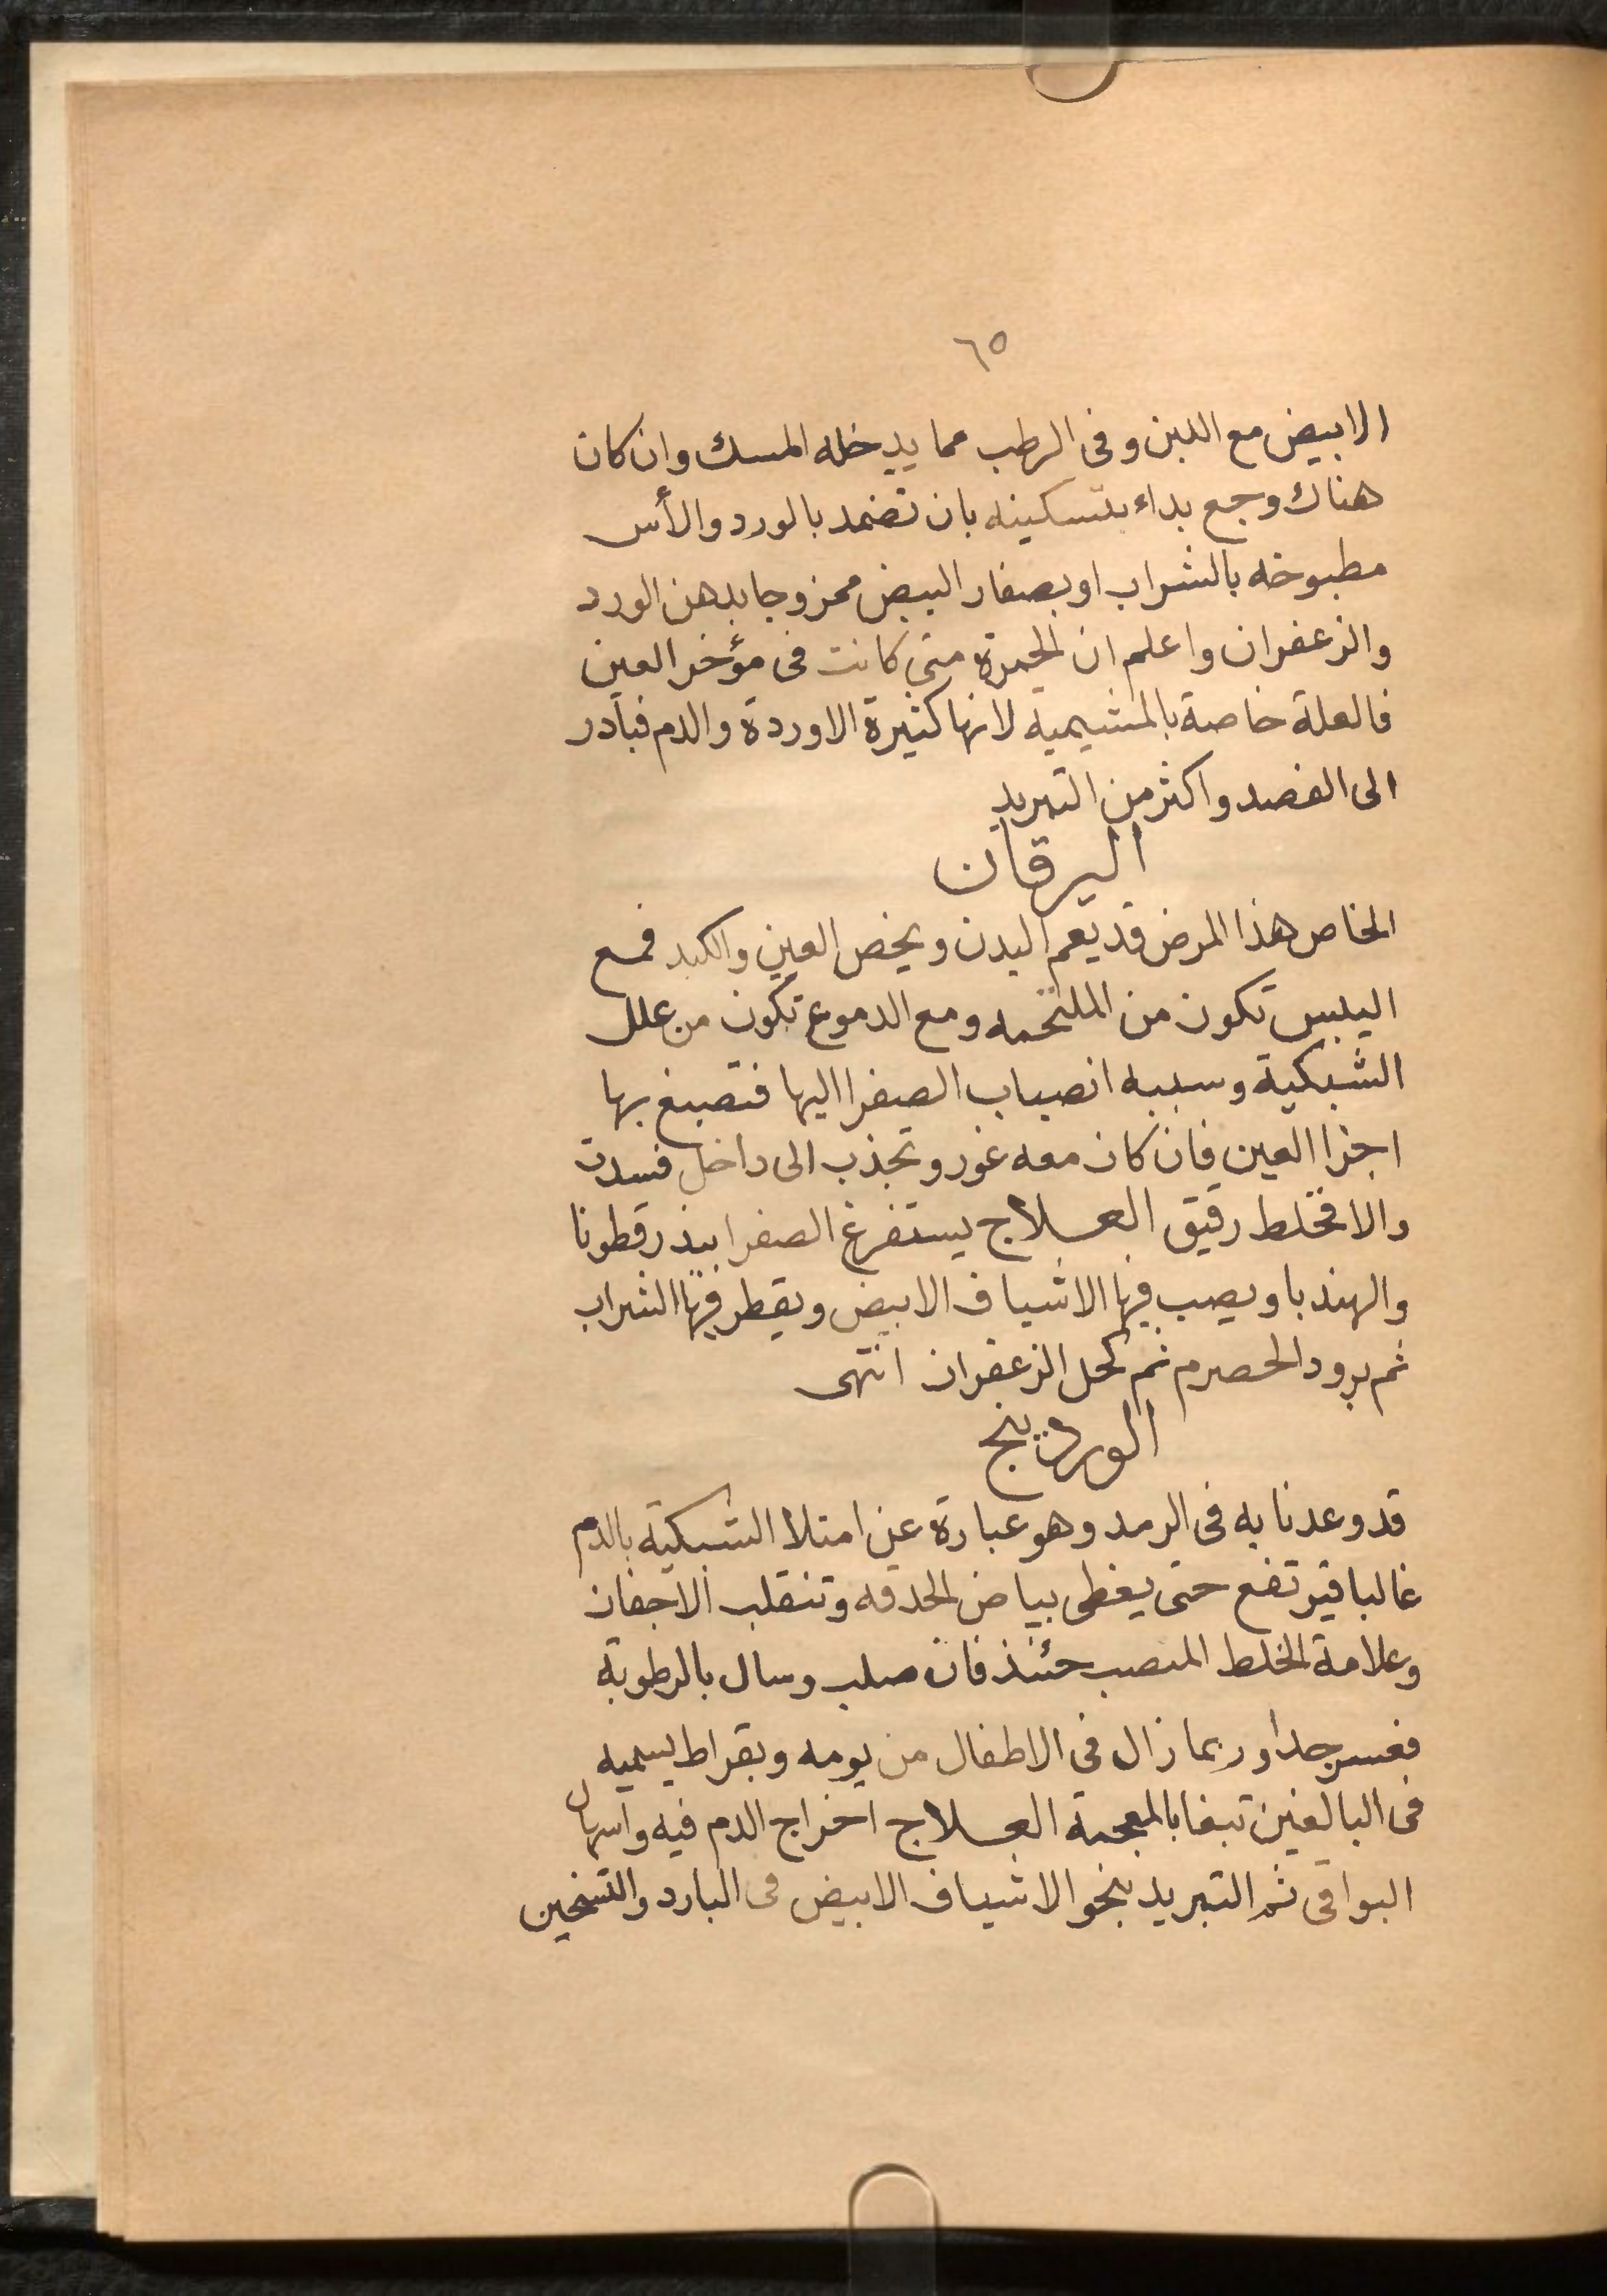 ٦٥
الابيض مع اللبن وفى الرطب مما يدخله المسك وان كان
هناك وجع بداء بتسكينه بان تضمد بالورد والأس
مطبوخه بالشراب او بصفار البيض ممزوجا بدهن الورد
والزعفران واعلم ان الحمرة متى كانت فى مؤخر العين
فالعلة خاصة بالمشيمية لانها كثيرة الاوردة والدم فبادر
الى الفصد واكثر من التبريد
اليرقان
الخاص هذا المرض قد يعم البدن ويخص العين والكبد فمع
اليبس تكون من الملتحمه ومع الدموع تكون من علل
الشبكية وسببه انصباب الصفرا اليها فتصبغ بها
اجزا العين فان كان معه غور وتجذب الى داخل فسدت
والا فخلط رقيق العلاج يستفرغ الصفرا ببذر قطونا
والهندبا ويصب فيها الاشياف الابيض ويقطر فيها الشراب
ثم برود الحصرم ثم كحل الزعفران انتهى
الوردينج
قد وعدنا به فى الرمد وهو عبارة عن امتلا الشبكية بالدم
غالبا فيرتفع حتى يغطى بياض الحدقه وتنقلب الاجفان
وعلامة الخلط المنصب حئنذ فان صلب وسال بالرطوبة
فعسر جدا وربما زال فى الاطفال من يومه وبقراط يسميه
فى البالغين تبغا بالمعجمة العلاج اخراج الدم فيه واسهال
البواقى ثم التبريد بنحو الاشياف الابيض فى البارد والتسخين